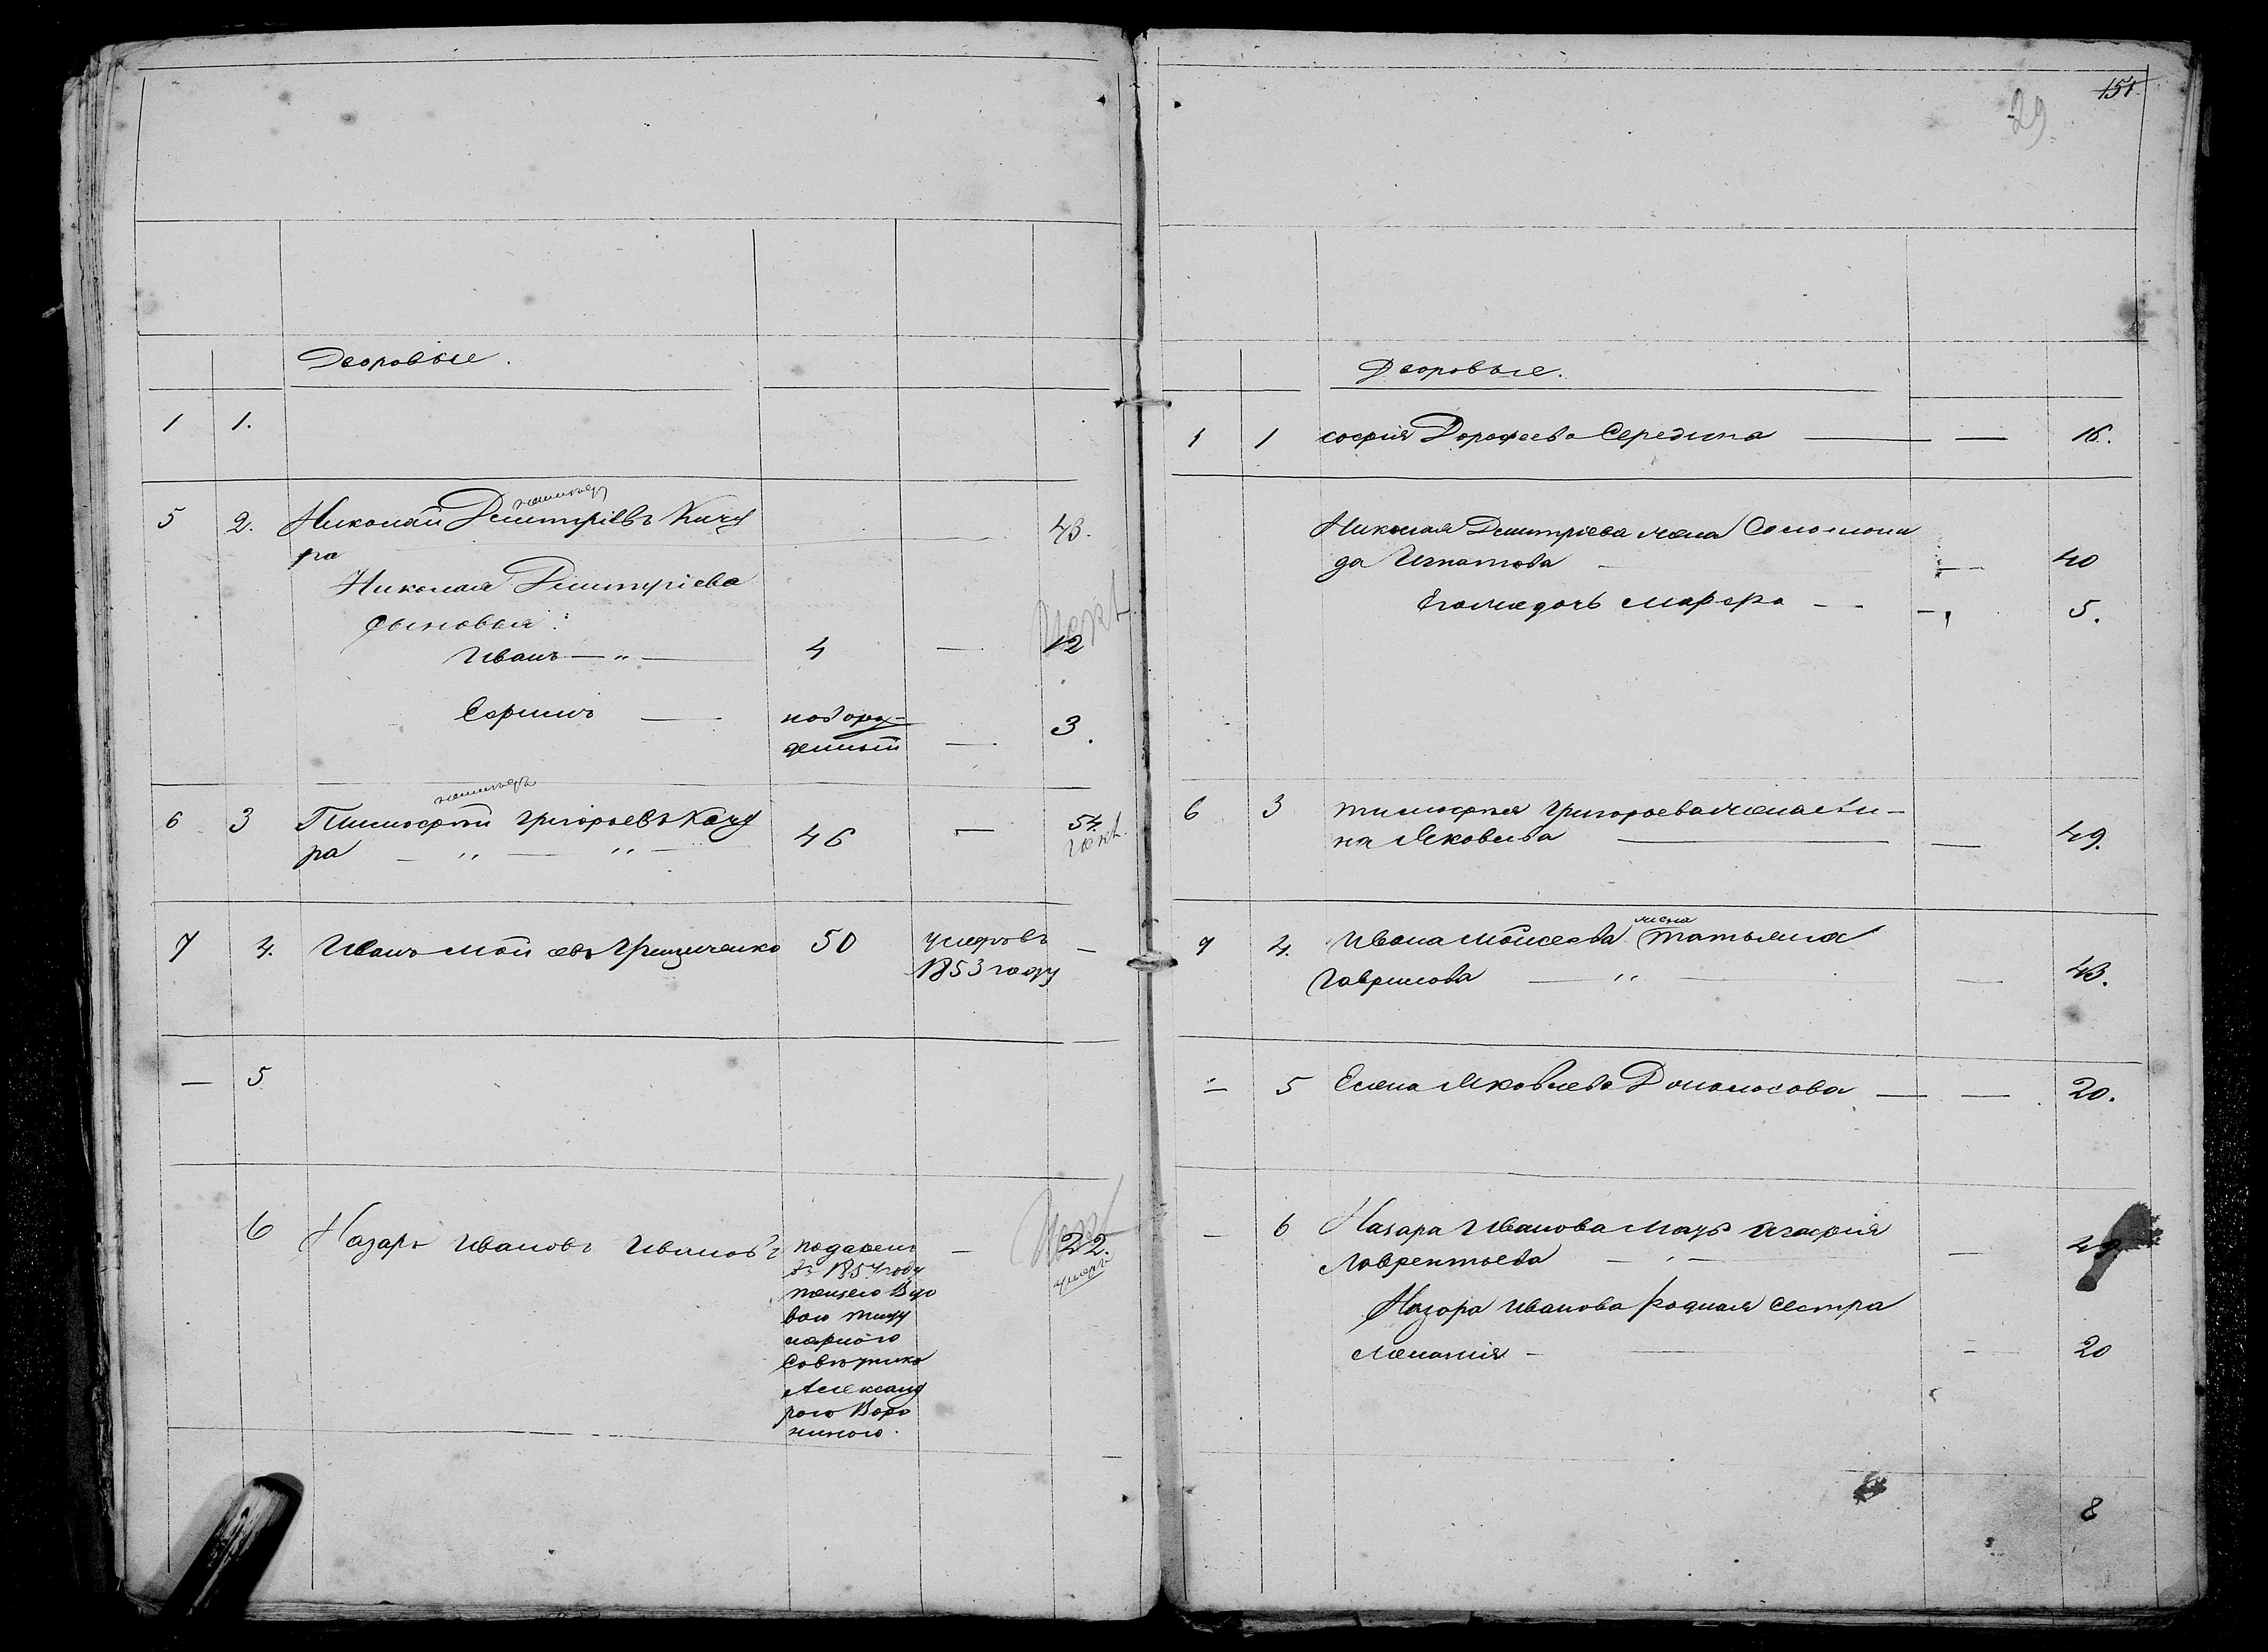 Дворовые.
1 1.
5 2. Николай Дмитріевъ Качу
ра — 43.
Николая Дмитріева
Сыновья:
Иванъ — " — 4 — 12
Ефимъ — новорож-
денный — 3.
6 3 Тимофей Григорьевъ Качу 46 — 54.
ра — " — " —
7 4. Иванъ Моисеевъ Грищенко 50 умеръ въ —
1853 году
— 5
6 Назаръ Ивановъ Ивановъ подаренъ — 22.
въ 1857 году умеръ
Титу
лярного
Совѣтника
Александ
рою Воро
ниною.
151
29.
Дворовые.
1 1 София Дорофеева Середина — — 16.
Николая Дмитріева жена Соломони
да Игнатова — 40
Его же дочь Марфа — — 5.
6 3 Тимофея Григорьева жена
на Яковлева — — 49.
жена
7 4. Ивана Моисеева Татьяна
Гаврилова — " — — 43.
— 5 Елена Яковлева Домолосова — — 20.
— 6 Назара Иванова мать Агафія
Лаврентьева — " — — 49.
Назара Иванова родная сестра
Меланія — — 20
8